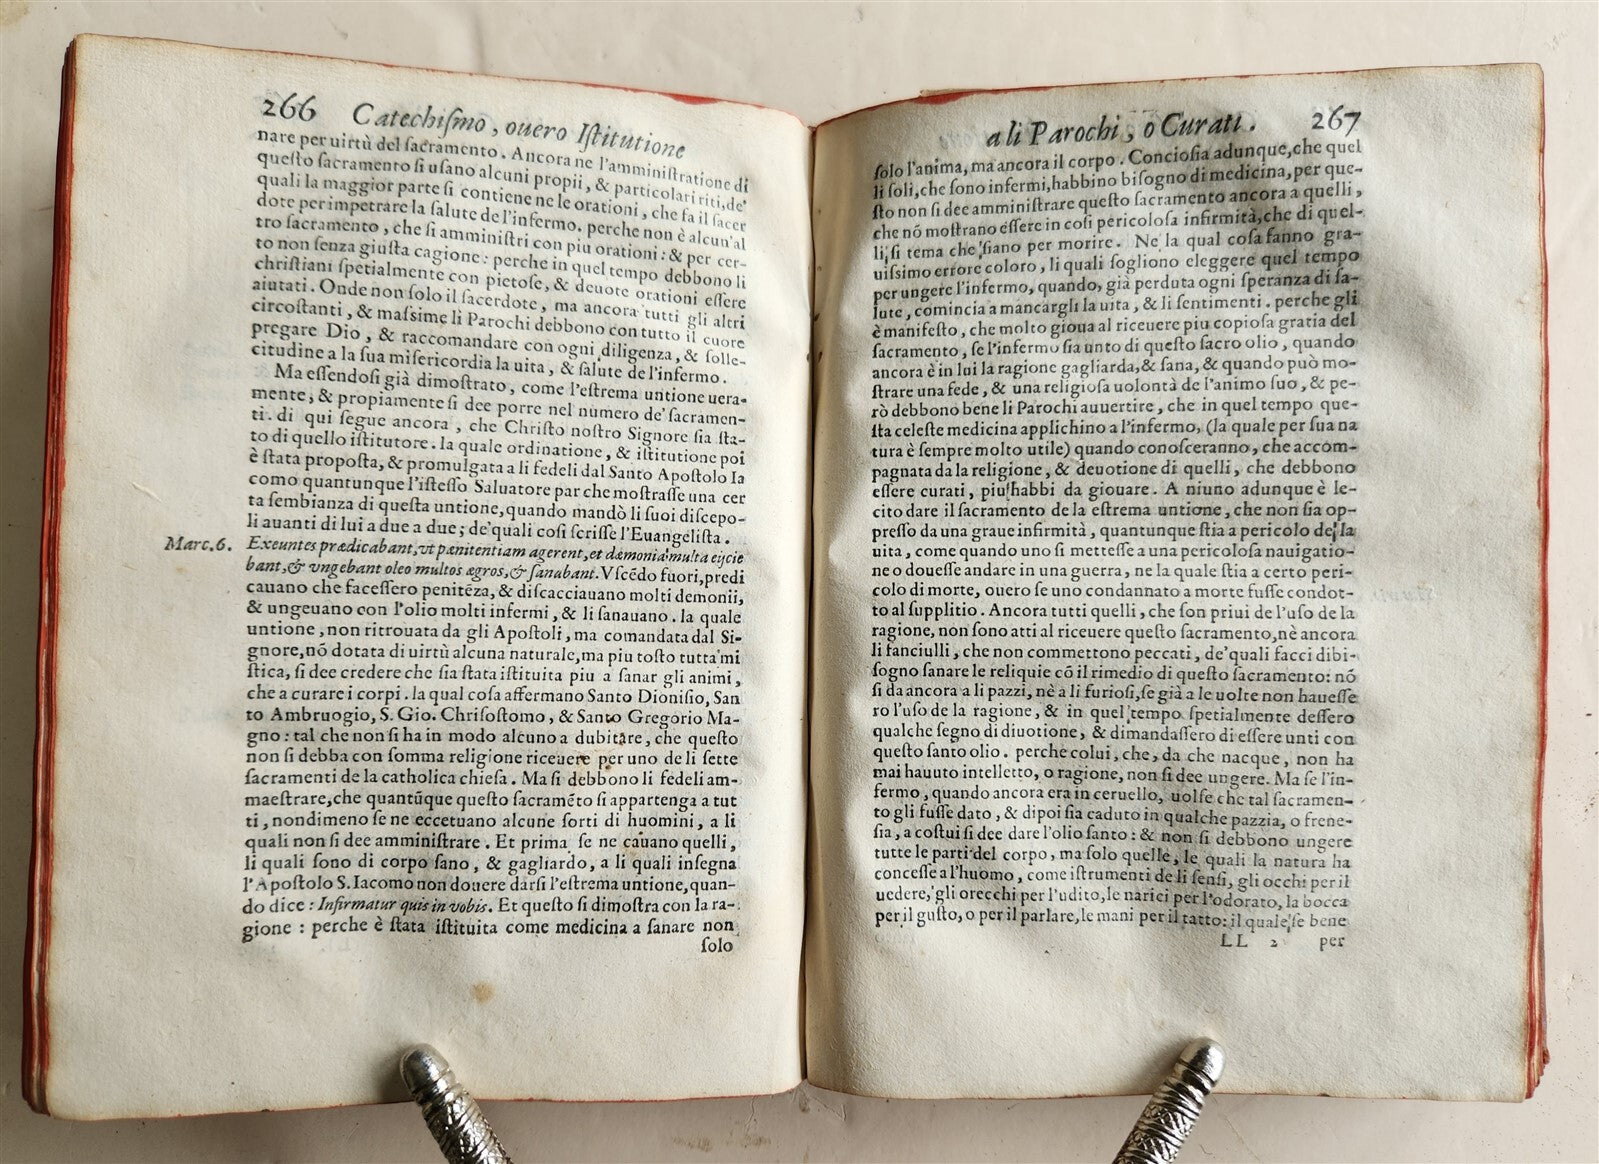 266 Catechiſmo, ouero Iſtitutione
nare per uirtù del ſacramento. Ancora ne l'amminiſtratione di
queſto ſacramento ſi uſano alcuni propii, & particolari riti, de'
quali la maggior parte ſi contiene ne le orationi, che fa il ſacer
dote per impetrare la ſalute de l'infermo. perche non è alcun'al
tro ſacramento, che ſi amminiſtri con piu orationi: & per cer-
to non ſenza giuſta cagione: perche in quel tempo debbono li
chriſtiani ſpetialmente con pietoſe, & deuote orationi eſſere
aiutati. Onde non ſolo il ſacerdote, ma ancora tutti gli altri
circoſtanti, & maſsime li Parochi debbono con tutto il cuore
pregare Dio, & raccomandare con ogni diligenza, & ſolle-
citudine a la ſua miſericordia la uita, & ſalute de l'infermo.
Ma eſſendoſi già dimoſtrato, come l'eſtrema untione uera-
mente, & propiamente ſi dee porre nel numero de' ſacramen-
ti. di qui ſegue ancora, che Chriſto noſtro Signore ſia ſta-
to di quello iſtitutore. la quale ordinatione, & iſtitutione poi
è ſtata propoſta, & promulgata a li fedeli dal Santo Apoſtolo Ia
como quantunque l'iſteſſo Saluatore par che moſtraſſe una cer
ta ſembianza di queſta untione, quando mandò li ſuoi diſcepo-
li auanti di lui a due a due; de' quali coſi ſcriſſe l'Euangeliſta.
Marc. 6. Exeuntes prædicabant, vt pœnitentiam agerent, et dæmonia multa eijcie
bant, & vngebant oleo multos ægros, & ſanabant. Vſcēdo fuori, predi
cauano che faceſſero penitēza, & diſcacciauano molti demonii,
& ungeuano con l'olio molti infermi, & li ſanauano. la quale
untione, non ritrouata da gli Apoſtoli, ma comandata dal Si-
gnore, nō dotata di uirtù alcuna naturale, ma piu toſto tutta mi
ſtica, ſi dee credere che ſia ſtata iſtituita piu a ſanar gli animi,
che a curare i corpi. la qual coſa affermano Santo Dioniſio, San
to Ambruogio, S. Gio. Chriſoſtomo, & Santo Gregorio Ma-
gno: tal che non ſi ha in modo alcuno a dubitare, che queſto
non ſi debba con ſomma religione riceuere per uno de li ſette
ſacramenti de la catholica chieſa. Ma ſi debbono li fedeli am-
maeſtrare, che quantūque queſto ſacramēto ſi appartenga a tut
ti, nondimeno ſe ne eccetuano alcune ſorti di huomini, a li
quali non ſi dee amminiſtrare. Et prima ſe ne cauano quelli,
li quali ſono di corpo ſano, & gagliardo, a li quali inſegna
l'Apoſtolo S. Iacomo non douere darſi l'eſtrema untione, quan-
do dice: Infirmatur quis in vobis. Et queſto ſi dimoſtra con la ra-
gione: perche è ſtata iſtituita come medicina a ſanare non
ſolo
a li Parochi, o Curati. 267
ſolo l'anima, ma ancora il corpo. Concioſia adunque, che quel
li ſoli, che ſono infermi, habbino biſogno di medicina, per que-
ſto non ſi dee amminiſtrare queſto ſacramento ancora a quelli,
che nō moſtrano eſſere in coſi pericoloſa infirmità, che di quel-
li, ſi tema che ſiano per morire. Ne la qual coſa fanno gra-
uiſsimo errore coloro, li quali ſogliono eleggere quel tempo
per ungere l'infermo, quando, già perduta ogni ſperanza di ſa-
lute, comincia a mancargli la uita, & li ſentimenti. perche gli
è manifeſto, che molto gioua al riceuere piu copioſa gratia del
ſacramento, ſe l'infermo ſia unto di queſto ſacro olio, quando
ancora è in lui la ragione gagliarda, & ſana, & quando può mo-
ſtrare una fede, & una religioſa uolontà de l'animo ſuo, & pe-
rò debbono bene li Parochi auuertire, che in quel tempo que-
ſta celeſte medicina applichino a l'infermo, (la quale per ſua na
tura è ſempre molto utile) quando conoſceranno, che accom-
pagnata da la religione, & deuotione di quelli, che debbono
eſſere curati, piu habbi da giouare. A niuno adunque è le-
cito dare il ſacramento de la eſtrema untione, che non ſia op-
preſſo da una graue infirmità, quantunque ſtia a pericolo de la
uita, come quando uno ſi metteſſe a una pericoloſa nauigatio-
ne o doueſſe andare in una guerra, ne la quale ſtia a certo peri-
colo di morte, ouero ſe uno condannato a morte fuſſe condot-
to al ſupplitio. Ancora tutti quelli, che ſon priui de l'uſo de la
ragione, non ſono atti al riceuere queſto ſacramento, nè ancora
li fanciulli, che non commettono peccati, de' quali facci dibi-
ſogno ſanare le reliquie cō il rimedio di queſto ſacramento: nō
ſi da ancora a li pazzi, nè a li furioſi, ſe già a le uolte non haueſſe
ro l'uſo de la ragione, & in quel tempo ſpetialmente deſſero
qualche ſegno di diuotione, & dimandaſſero di eſſere unti con
queſto ſanto olio. perche colui, che, da che nacque, non ha
mai hauuto intelletto, o ragione, non ſi dee ungere. Ma ſe l'in-
fermo, quando ancora era in ceruello, uolſe che tal ſacramen-
to gli fuſſe dato, & dipoi ſia caduto in qualche pazzia, o frene-
ſia, a coſtui ſi dee dare l'olio ſanto: & non ſi debbono ungere
tutte le parti del corpo, ma ſolo quelle, le quali la natura ha
conceſſe a l'huomo, come iſtrumenti de li ſenſi, gli occhi per il
uedere, gli orecchi per l'udito, le narici per l'odorato, la bocca
per il guſto, o per il parlare, le mani per il tatto: il quale, ſe bene
LL 2 per